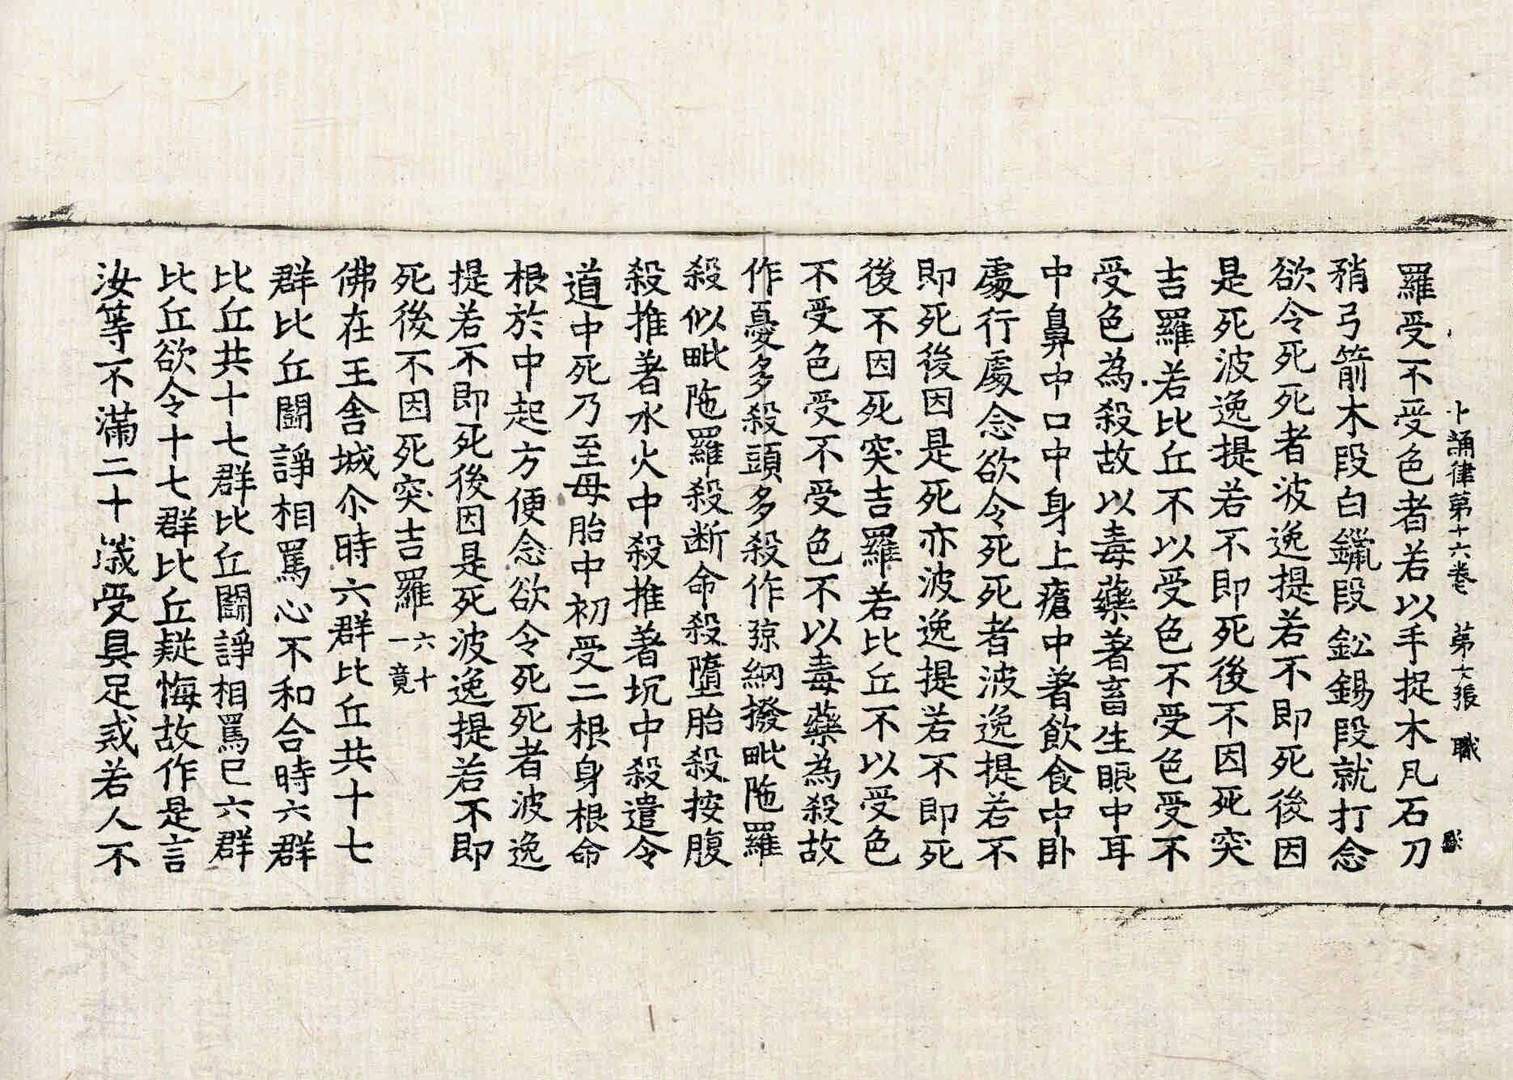 十誦律第十六卷 第七張 職
羅受不受色者若以手捉木瓦石刀
矟弓箭木段白鑞段鈆錫段就打念
欲令死死者波逸提若不即死後因
是死波逸提若不即死後不因死突
吉羅若比丘不以受色不受色受不
受色為殺故以毒藥著畜生眼中耳
中鼻中口中身上瘡中著飲食中卧
處行處念欲令死死者波逸提若不
即死後因是死亦波逸提若不即死
後不因死突吉羅若比丘不以受色
不受色受不受色不以毒藥為殺故
作憂多殺頭多殺作弶網撥毗陁羅
殺似毗陁羅殺断命殺墮胎殺按腹
殺推著水火中殺推著坑中殺遣令
道中死乃至母胎中初受二根身根命
根於中起方便念欲令死死者波逸
提若不即死後因是死波逸提若不即
死後不因死突吉羅 六十一竟
佛在王舍城尒時六群比丘共十七
群比丘鬪諍相罵心不和合時六群
比丘共十七群比丘鬪諍相罵已六群
比丘欲令十七群比丘疑悔故作是言
汝等不滿二十歲受具足戒若人不